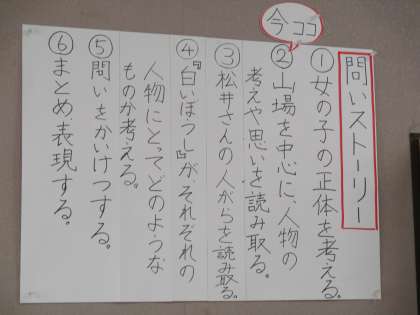 今ココ
問いストーリー
①女の子の正体を考える。
②山場を中心に、人物の
考えや思いを読み取る。
③松井さんの人がらを読み取る。
④『白いぼうし』がそれぞれの
人物にとってどのような
ものか考える。
⑤問いをかいけつする。
⑥まとめ、表現する。